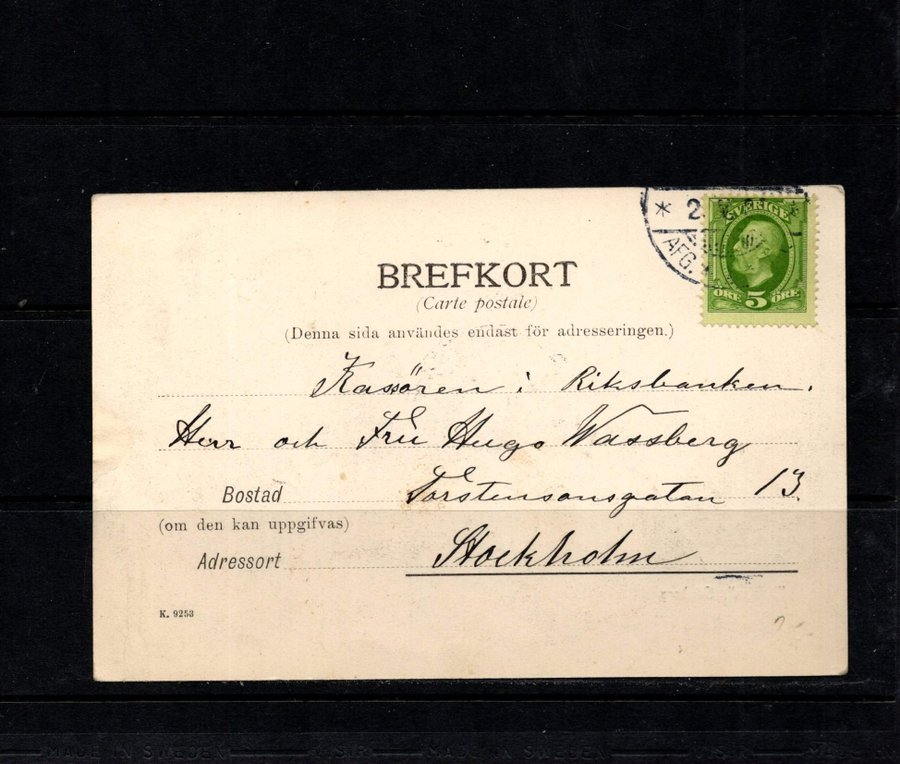 * 2. *
AFG. *
SVERIGE
ÖRE 5 ÖRE
BREFKORT
(Carte postale)
(Denna sida användes endast för adresseringen.)
Kassören i Riksbanken.
Herr och Fru Hugo Wassberg
Bostad Torstensonsgatan 13.
(om den kan uppgifvas)
Adressort Stockholm
K. 9253
MADE IN SWEDEN
MADE IN SWEDEN